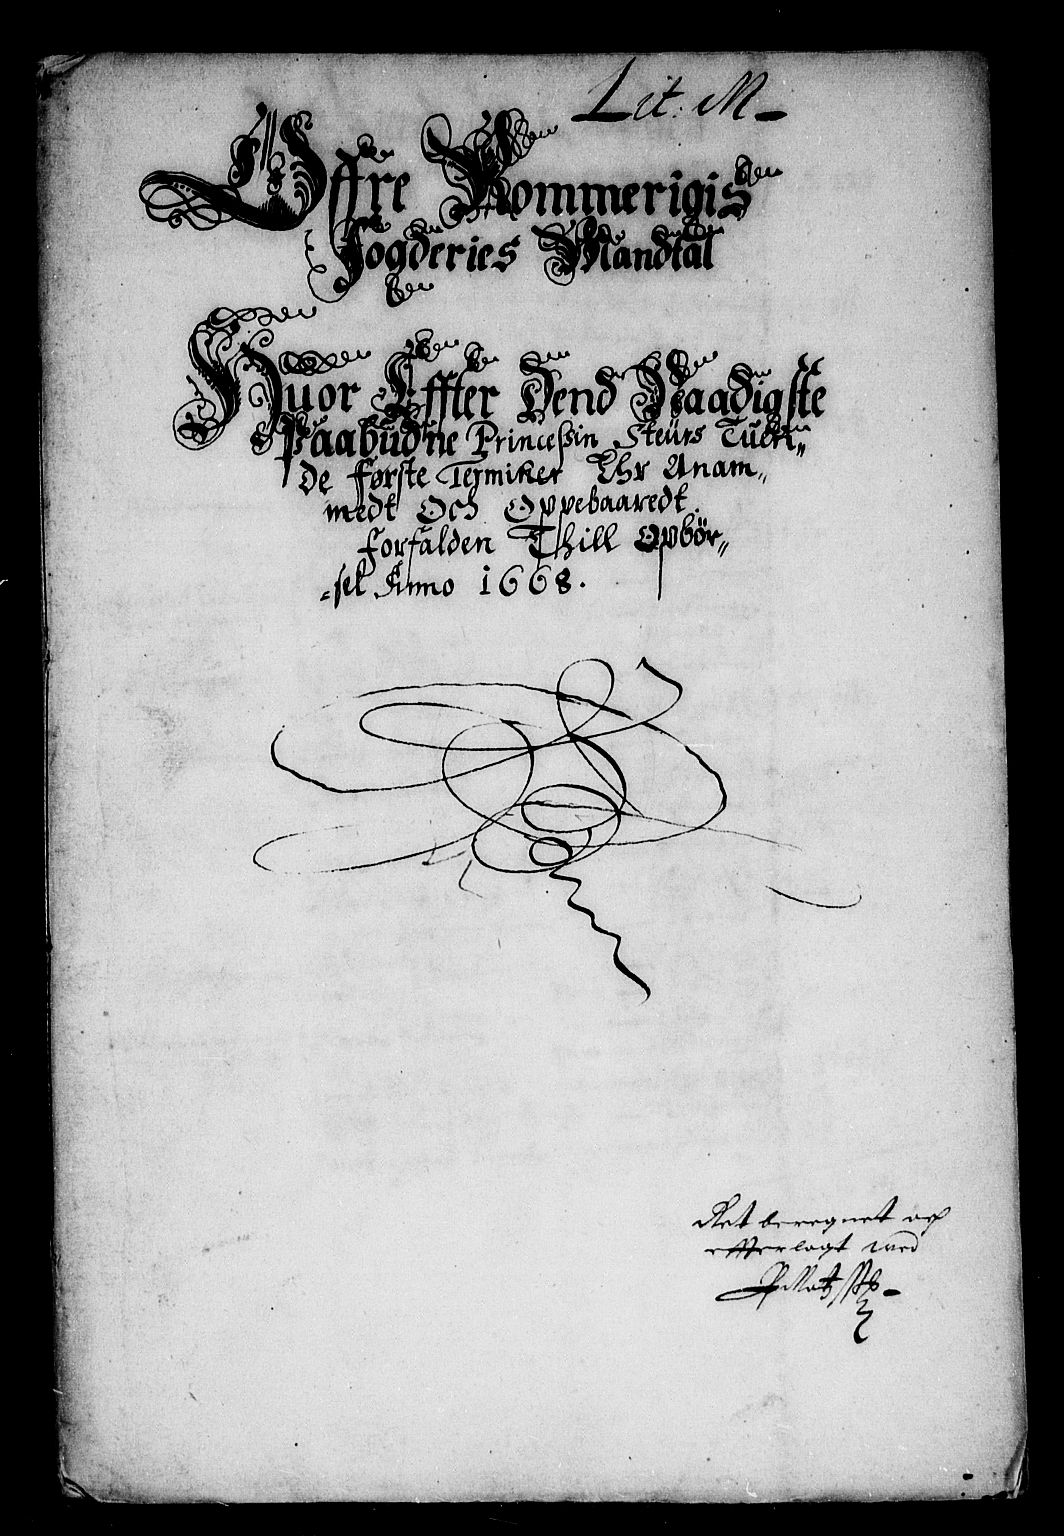 Lit: M
Øffre Rommerigis
Fogderies Mandtal
Huor Effter Dend Naadigste
Paabudne Princeßin Steurs Tuen„
de Første Terminer Ehr Anam„
medt Och Oppebaaredt
forfalden Thill Opbör„
-sel Anno 1668.
Ret beregnet och
effterlagt med